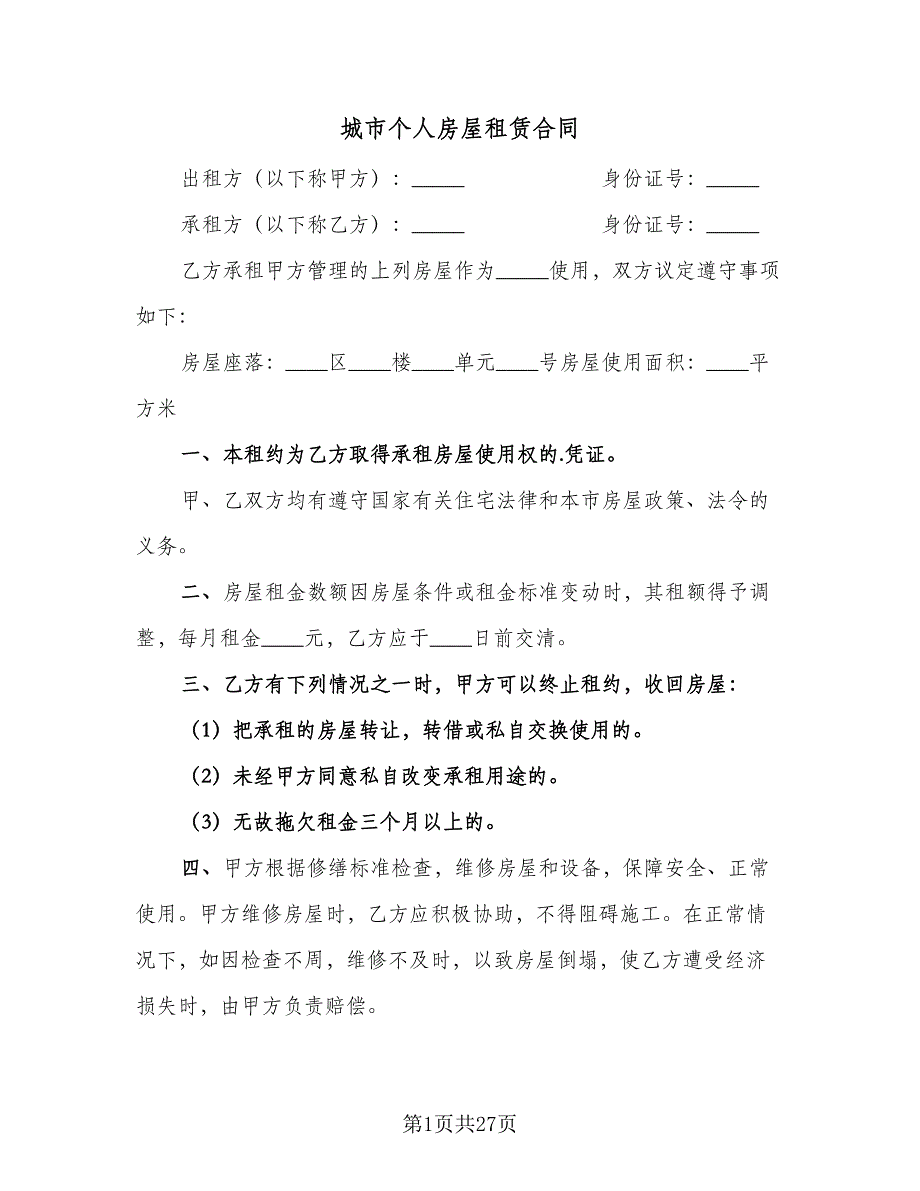 城市个人房屋租赁合同
出租方（以下称甲方）：_____ 身份证号：_____
承租方（以下称乙方）：_____ 身份证号：_____
乙方承租甲方管理的上列房屋作为_____使用，双方议定遵守事项
如下：
房屋座落：____区____楼____单元____号房屋使用面积：____平
方米
一、本租约为乙方取得承租房屋使用权的.凭证。
甲、乙双方均有遵守国家有关住宅法律和本市房屋政策、法令的
义务。
二、房屋租金数额因房屋条件或租金标准变动时，其租额得予调
整，每月租金____元，乙方应于____日前交清。
三、乙方有下列情况之一时，甲方可以终止租约，收回房屋：
（1）把承租的房屋转让，转借或私自交换使用的。
（2）未经甲方同意私自改变承租用途的。
（3）无故拖欠租金三个月以上的。
四、甲方根据修缮标准检查，维修房屋和设备，保障安全、正常
使用。甲方维修房屋时，乙方应积极协助，不得阻碍施工。在正常情
况下，如因检查不周，维修不及时，以致房屋倒塌，使乙方遭受经济
损失时，由甲方负责赔偿。
第1页共27页